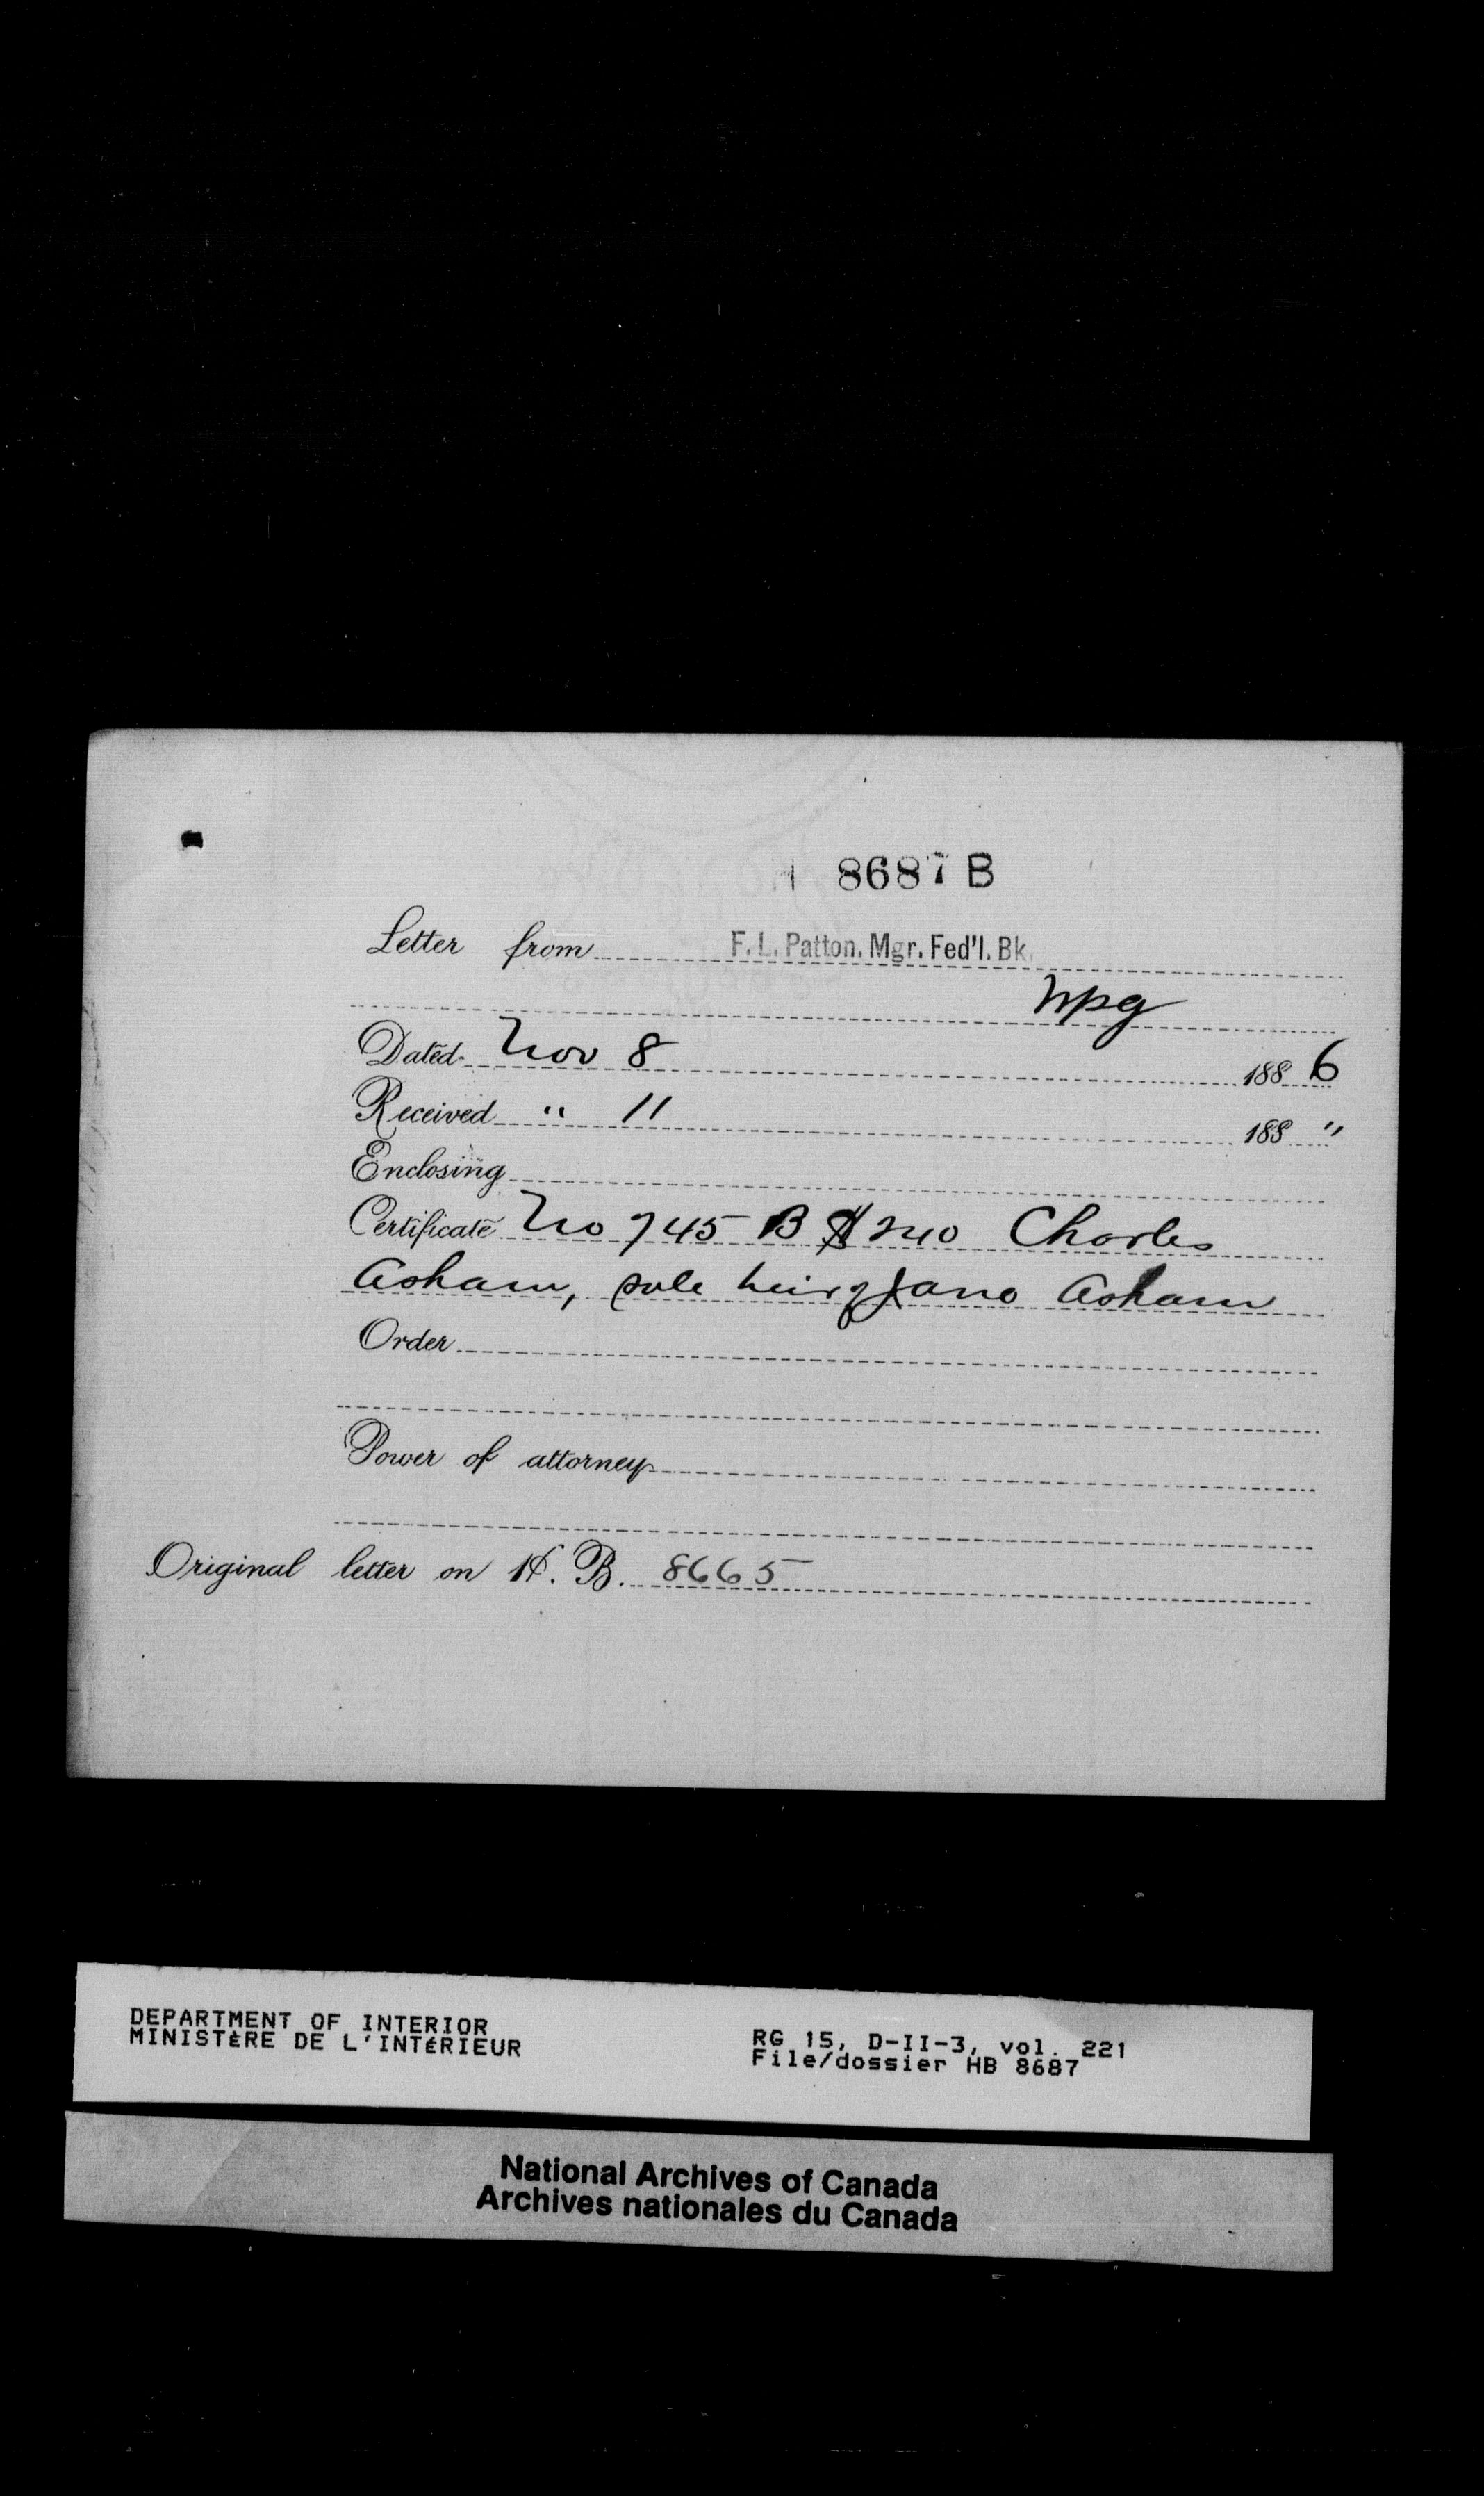 8687 B
Letter from F. L. Patton. Mgr. Fed'l. Bk.
Wpg
Dated Nov 8 1886
Received " 11 188 "
Enclosing
Certificate No 745 B $240 Charles
Asham, sole heir of Jane Asham
Order
Power of attorney
Original letter on H. B. 8665
DEPARTMENT OF INTERIOR
MINISTÈRE DE L'INTÉRIEUR
RG 15, D-II-3, vol. 221
File/dossier HB 8687
National Archives of Canada
Archives nationales du Canada